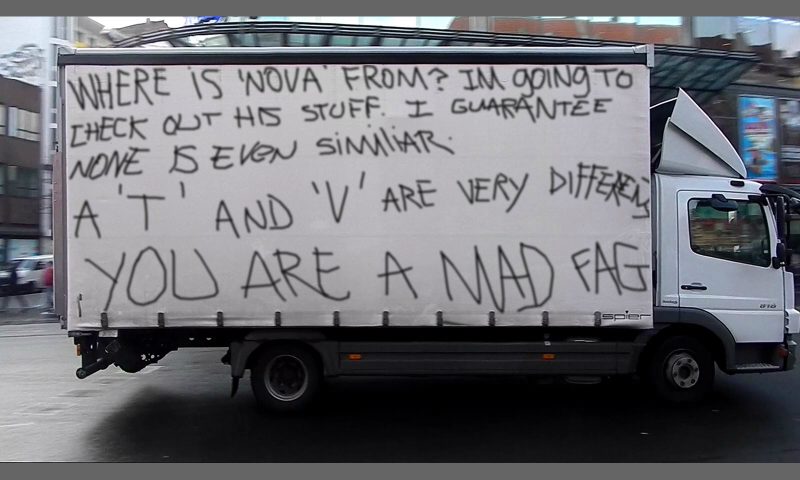 WHERE IS 'NOVA' FROM? IM GOING TO
CHECK OUT HIS STUFF. I GUARANTEE
NONE IS EVEN SIMILIAR.
A 'T' AND 'V' ARE VERY DIFFERENT
YOU ARE A MAD FAG
spier